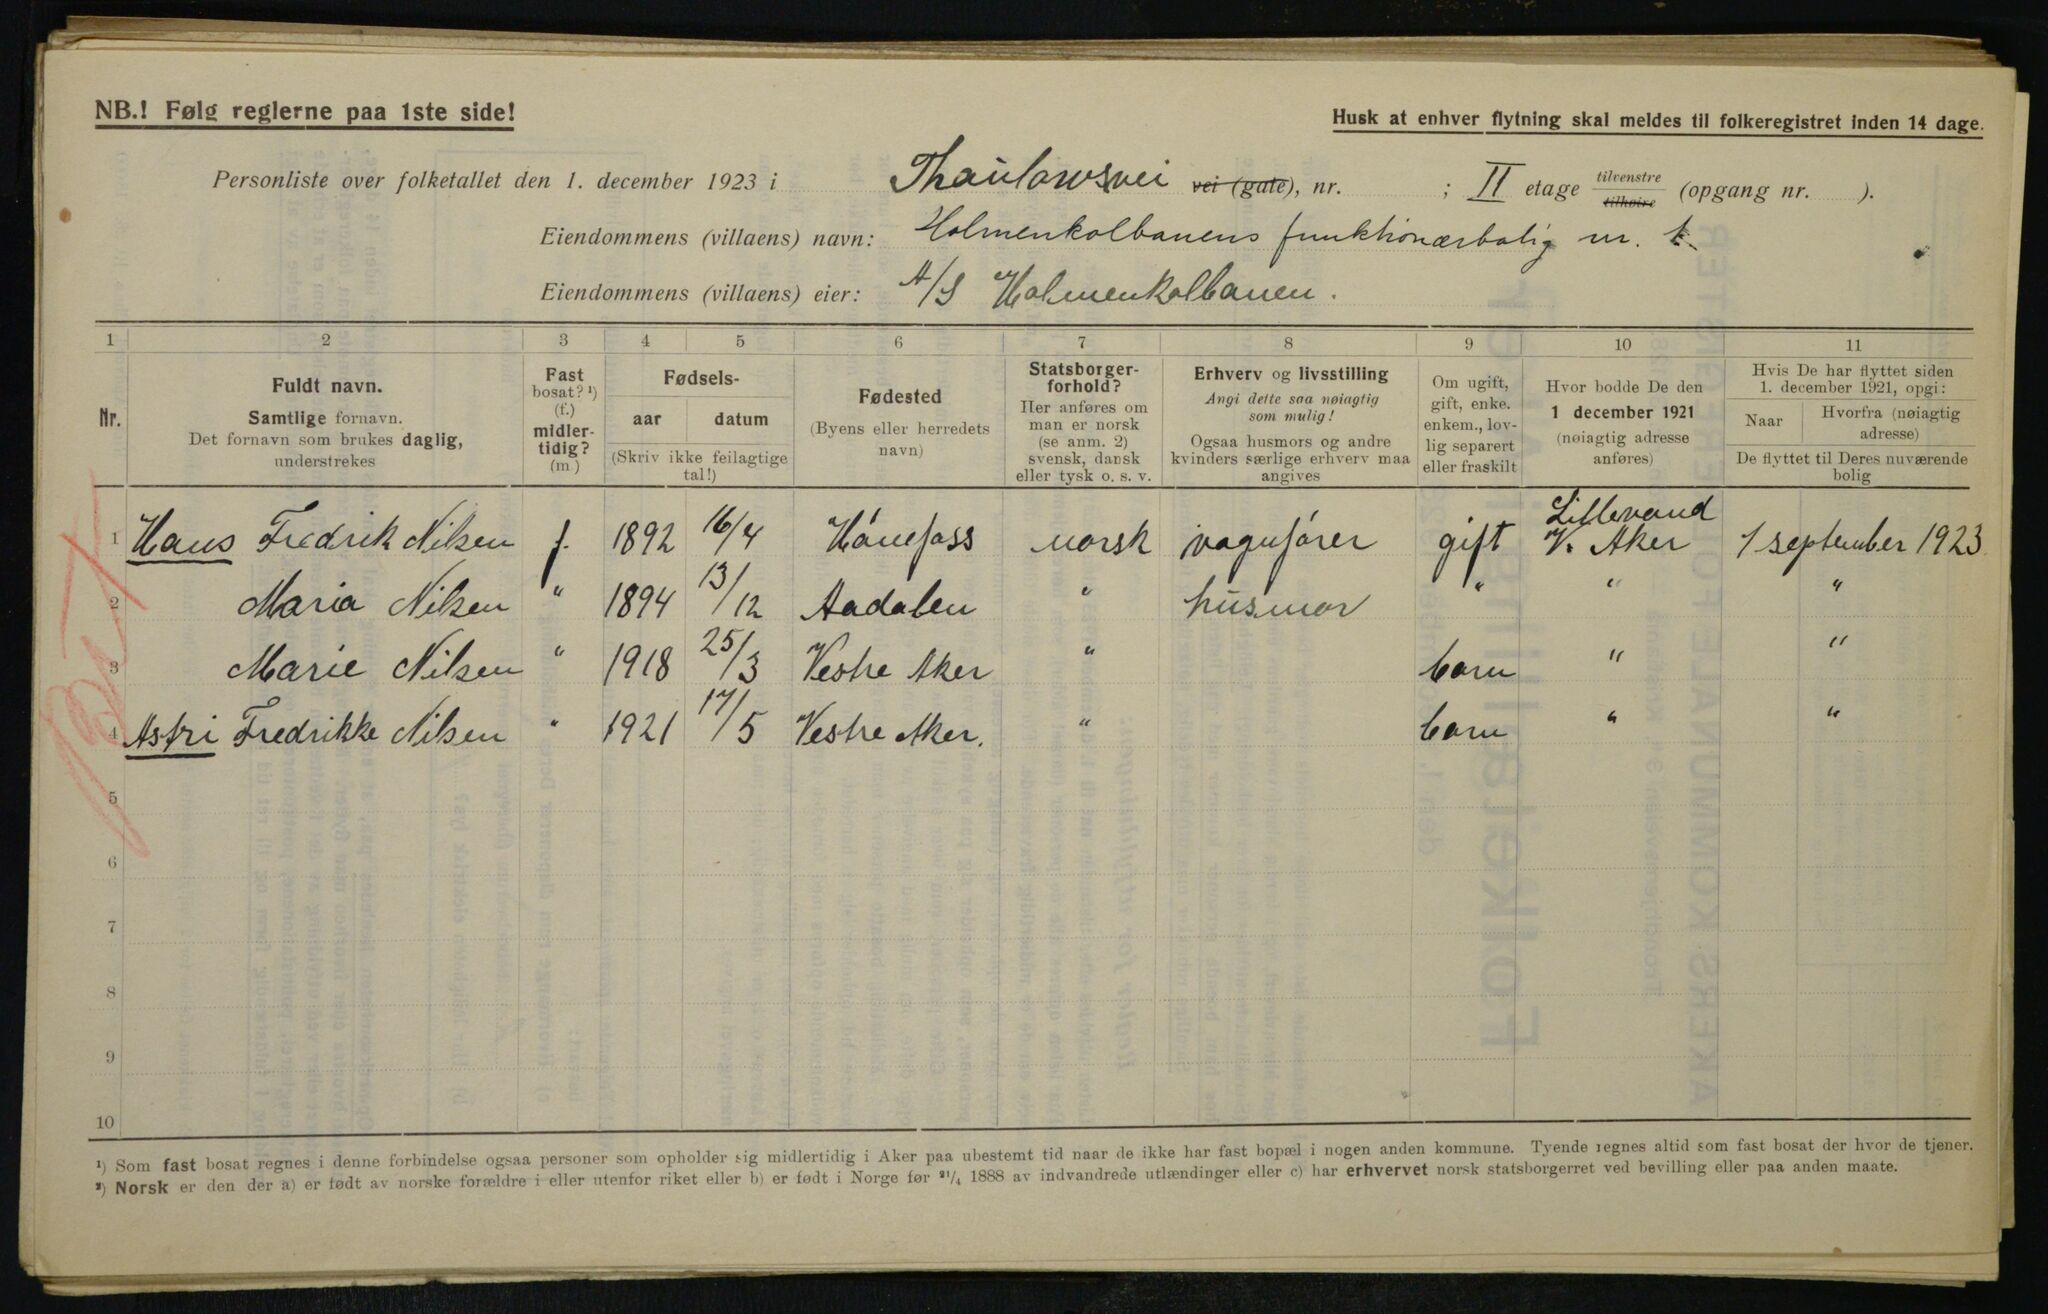 NB.! Følg reglerne paa 1ste side!
Husk at enhver flytning skal meldes til folkeregistret inden 14 dage.
Personliste over folketallet den 1. december 1923 i Thaulowsvei vei (gate), nr. ; II etage tilvenstre tilhøire (opgang nr. ).
Eiendommens (villaens) navn: Holmenkolbanens funktionærbolig nr.
Eiendommens (villaens) eier: A/S Holmenkolbanen.
1 2 3 4 5 6 7 8 9 10 11
Nr.
Fuldt navn.
Samtlige fornavn.
Det fornavn som brukes daglig,
understrekes
Fast
bosat? ¹)
(f.)
midler-
tidig?
(m.)
Fødsels-
aar datum
(Skriv ikke feilagtige
tal!)
Fødested
(Byens eller herredets
navn)
Statsborger-
forhold?
Her anføres om
man er norsk
(se anm. 2)
svensk, dansk
eller tysk o. s. v.
Erhverv og livsstilling
Angi dette saa nøiagtig
som mulig!
Ogsaa husmors og andre
kvinders særlige erhverv maa
angives
Om ugift,
gift, enke.
enkem., lov-
lig separert
eller fraskilt
Hvor bodde De den
1 december 1921
(nøiagtig adresse
anføres)
Hvis De har flyttet siden
1. december 1921, opgi:
Naar
Hvorfra (nøiagtig
adresse)
De flyttet til Deres nuværende
bolig
1 Hans Fredrik Nilsen f. 1892 16/4 Hónefoss norsk vognfører gift Lillevand V. Aker 1 september 1923
2 Maria Nilsen " 1894 13/12 Aadalen " husmor " " "
3 Marie Nilsen " 1918 25/3 Vestre Aker " barn " "
4 Astri Fredrikke Nilsen " 1921 17/5 Vestre Aker. " barn " "
5
6
7
8
9
10
¹) Som fast bosat regnes i denne forbindelse ogsaa personer som opholder sig midlertidig i Aker paa ubestemt tid naar de ikke har fast bopæl i nogen anden kommune. Tyende regnes altid som fast bosat der hvor de tjener.
²) Norsk er den der a) er født av norske forældre i eller utenfor riket eller b) er født i Norge før ²¹/₄ 1888 av indvandrede utlændinger eller c) har erhvervet norsk statsborgerret ved bevilling eller paa anden maate.